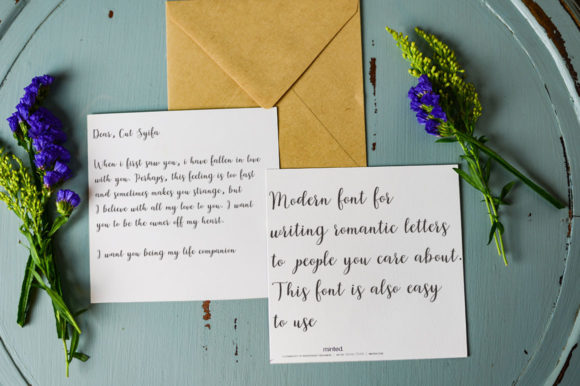 Dear, Cut Syifa
When i first saw you, i have fallen in love
with you. Perhaps, this feeling is too fast
and sometimes makes you strange, but
I believe with all my love to you. I want
you to be the owner off my heart.
I want you being my life companion
Modern font for
writing romantic letters
to people you care about.
This font is also easy
to use
minted.